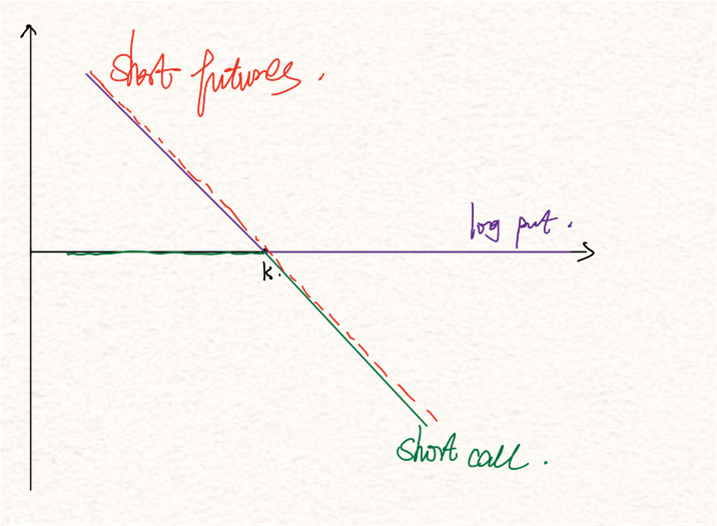 short futures.
log put.
k.
short call.